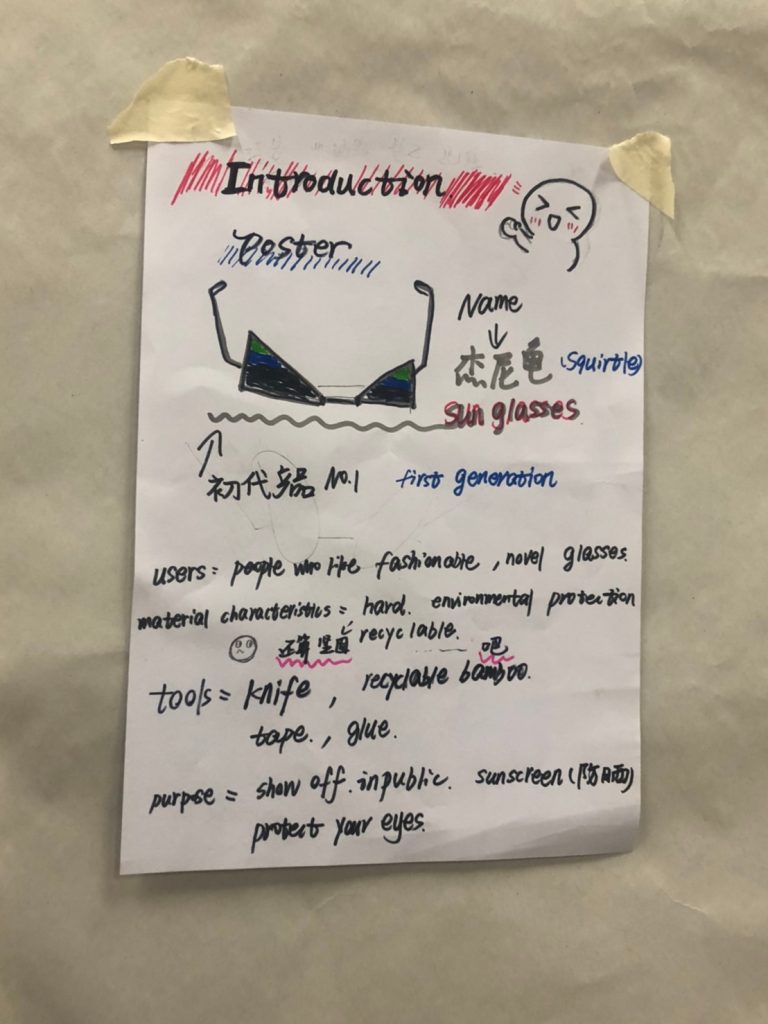 Introduction
Poster
Name
杰尼龟 (Squirtle)
sunglasses
初代 No.1 first generation
users: people who like fashionable, novel glasses.
material characteristics: hard. environmental protection
recyclable.
还算坚固 吧
tools: knife, recyclable bamboo.
tape., glue.
purpose = show off. in public. sunscreen (防日晒)
protect your eyes.